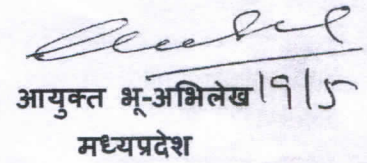 आयुक्त भू-अभिलेख 19/5
मध्यप्रदेश